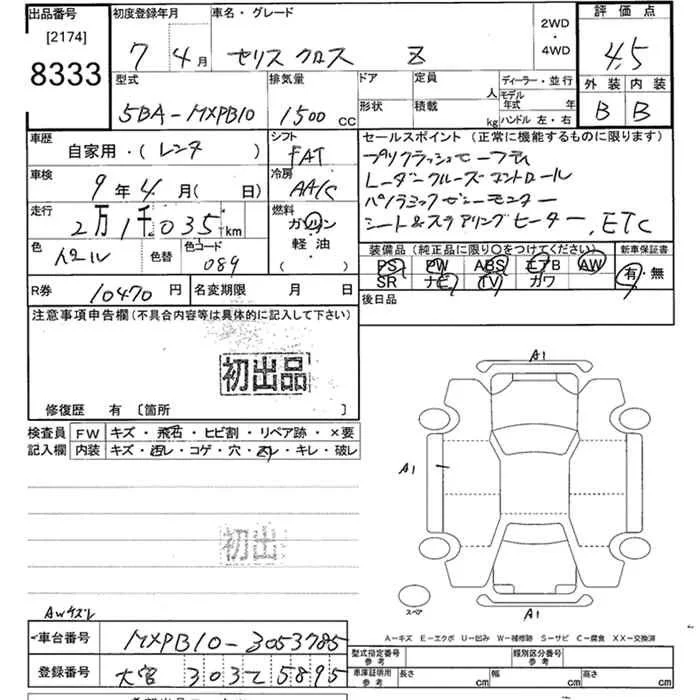 出品番号
[2174]
8333
初度登録年月
7 4月
車名・グレード
ヤリス クロス Z
2WD
・
4WD
評価点
4.5
外装 内装
B B
型式
5BA-MXPB10
排気量
1500 cc
ドア
形状
定員
人
積載
kg
ディーラー・並行
モデル
年式 年
ハンドル 左・右
車歴
自家用・(レンタ )
シフト
FAT
車検
9年4月( 日)
冷房
AA/C
走行
2万1千035km
燃料
ガソリン
軽油
( )
色
色替
色コード
089
R券
10470円
名変期限 月 日
セールスポイント(正常に機能するものに限ります)
プリクラッシュセーフティ
レーダークルーズコントロール
パノラミックビューモニター
シート&ステアリングヒーター, ETC
装備品(純正品に限り○をつけてください)
PS PW ABS エアB AW
SR ナビ TV カワ
新車保証書
有・無
後日品
注意事項申告欄(不具合内容等は具体的に記入して下さい)
初出品
修復歴 有 [箇所 ]
検査員
記入欄
FW キズ・飛石・ヒビ割・リペア跡・×要
内装 キズ・汚レ・コゲ・穴・スレ・キレ・破レ
初出
AWキズレ
A1
A1
A1
スペア
A-キズ E-エクボ U-凹み W-補修跡 S-サビ C-腐食 XX-交換済
車台番号
MXPB10-3053785
登録番号
大宮 303 て 5895
型式指定番号
参考
類別区分番号
参考
車庫証明用
参考
長さ cm
幅 cm
高さ cm